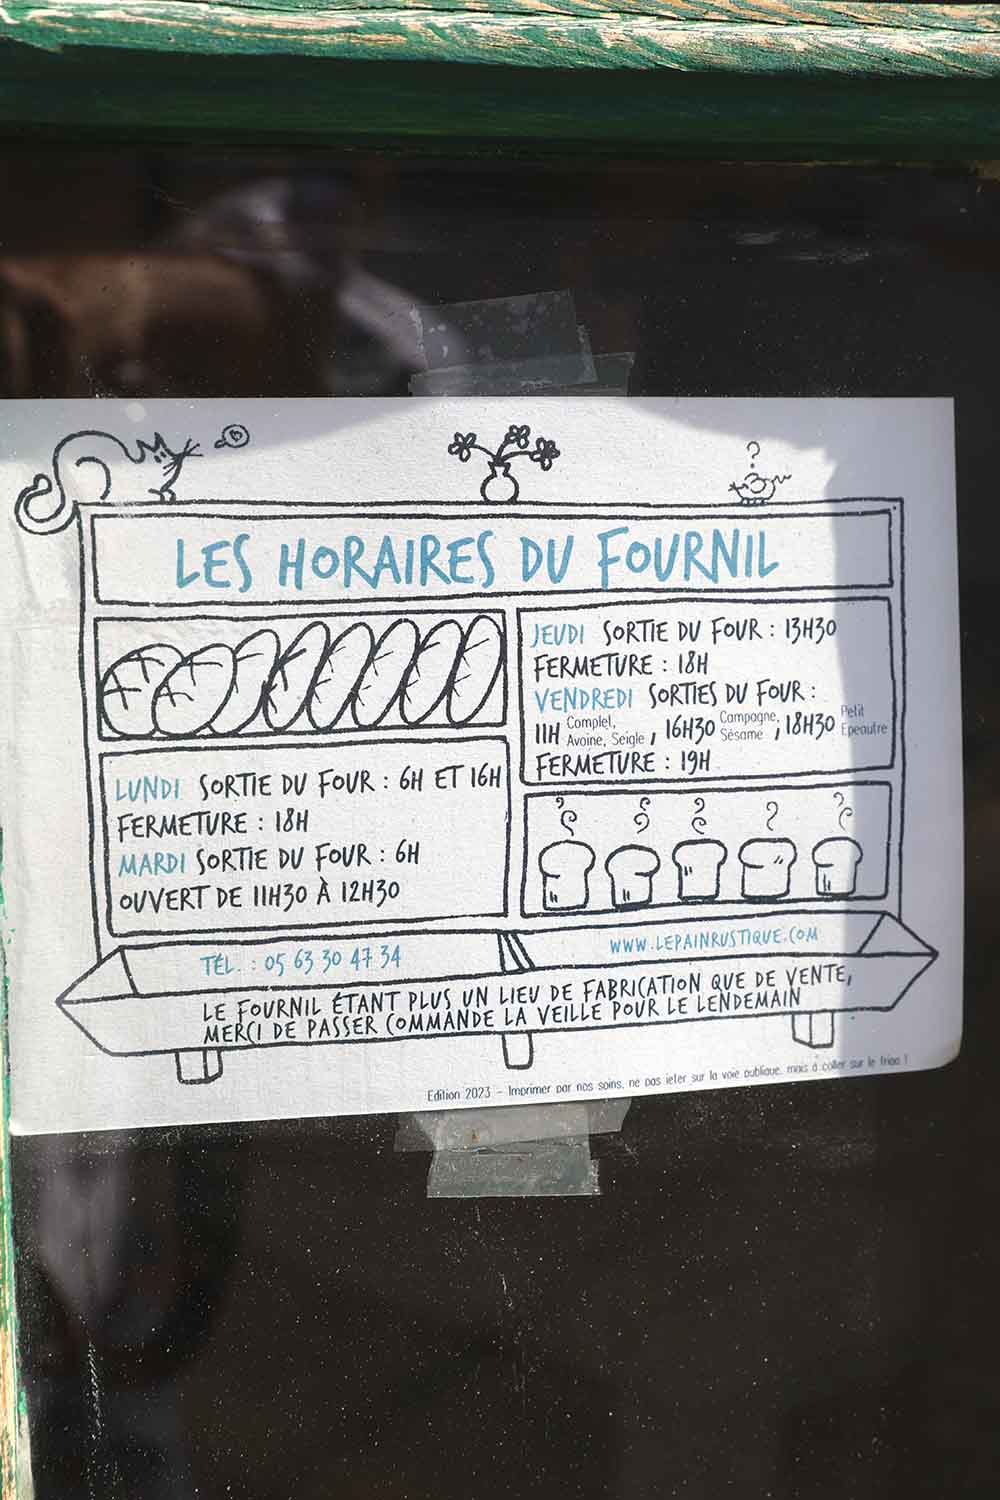 LES HORAIRES DU FOURNIL
LUNDI SORTIE DU FOUR : 6H ET 16H
FERMETURE : 18H
MARDI SORTIE DU FOUR : 6H
OUVERT DE 11H30 À 12H30
JEUDI SORTIE DU FOUR : 13H30
FERMETURE : 18H
VENDREDI SORTIES DU FOUR :
11H Complet, Avoine, Seigle , 16H30 Campagne, Sésame , 18H30 Petit Epeautre
FERMETURE : 19H
TÉL. : 05 63 30 47 34
WWW.LEPAINRUSTIQUE.COM
LE FOURNIL ÉTANT PLUS UN LIEU DE FABRICATION QUE DE VENTE,
MERCI DE PASSER COMMANDE LA VEILLE POUR LE LENDEMAIN
Edition 2023 - Imprimer par nos soins, ne pas jeter sur la voie publique, mais à coller sur le frigo !